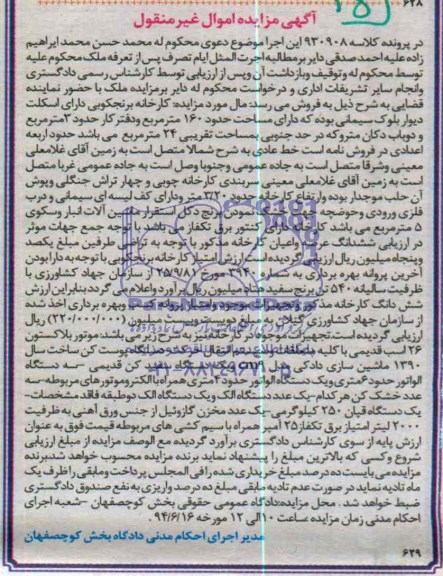 ۶۲۸
آگهی مزایده اموال غیر منقول
در پرونده کلاسه ۹۳۰۹۰۸ این اجرا موضوع دعوی محکوم له محمد حسن محمد ابراهیم
زاده علیه احمد صدقی دایر بر مطالبه اجرت المثل ایام تصرف پس از تعرفه ملک محکوم علیه
توسط محکوم له و توقیف و بازداشت آن و پس از ارزیابی توسط کارشناس رسمی دادگستری
و انجام سایر تشریفات اداری و درخواست محکوم له دایر بر مزایده ملک با حضور نماینده
قضایی به شرح ذیل به فروش می رسد: مال مورد مزایده: کارخانه برنجکوبی دارای اسکلت
دیوار بلوک سیمانی بوده که دارای مساحت حدود ۱۶۰ مترمربع و دفتر کار حدود ۳ مترمربع
و دوباب دکان متروکه در حد جنوبی بمساحت تقریبی ۲۴ مترمربع می باشد حدود اربعه
اعدادی در فروش نامه است خط عادی به شرح شمالا متصل است به زمین آقای غلامعلی
معینی و شرقا متصل است به جاده عمومی و جنوبا وصل است به جاده عمومی غربا متصل
است به زمین آقای غلامعلی معینی سربندی کارخانه چوبی و چهار تراش جنگلی و پوش
آن حلب موجدار بوده و ارتفاع کارخانه حدود ۳/۲۰ متر و دارای کف لیسه ای سیمانی و درب
فلزی ورودی و حوضچه جهت خشک نمودن برنج دکل استقرار ماشین آلات انبار و سکوی
۵ مترمربع می باشد کارخانه دارای کنتور برق تکفاز می باشد با توجه جمع جهات موثر
در ارزیابی ششدانگ عرصه و اعیان کارخانه مذکور با توجه به تراضی طرفین مبلغ یکصد
و پنجاه میلیون ریال ارزیابی گردیده است ارزش امتیاز کارخانه برنجکوبی با توجه به دارا بودن
آخرین پروانه بهره برداری به شماره ۳۹۴ مورخ ۲۵/۹/۸۱ از سازمان جهاد کشاورزی با
ظرفیت سالیانه ۵۴۰ تن برنج سفید هفتاد میلیون ریال برآورد و اعلام می گردد بنابراین ارزش
شش دانگ کارخانه مذکور و تجهیزات موجود و امتیاز پروانه کسب و بهره برداری اخذ شده
از سازمان جهاد کشاورزی گیلان به مبلغ دویست و بیست میلیون (۲۲۰/۰۰۰/۰۰۰) ریال
ارزیابی گردیده است تجهیزات موجود در کارخانه نیز به شرح زیر می باشد: موتور بلاکستون
۲۶ اسب قدیمی با کلیه متعلقات
۱۳۹۰ ماشین سازی
الواتور حدود ۶ متری و یک دستگاه الواتور حدود ۴ متری همراه با الکتروموتورهای مربوطه-سه
عدد خشک کن هر کدام-یک عدد دستگاه الک و یک دستگاه الک دوطبقه فاقد مشخصات-
یک دستگاه قپان ۲۵۰ کیلوگرمی-یک عدد مخزن گازوئیل از جنس ورق آهنی به ظرفیت
۲۰۰۰ لیتر امتیاز برق تکفاز ۲۵ آمپر همراه با سیم کشی های مربوطه قیمت فوق به عنوان
ارزش پایه از سوی کارشناس دادگستری برآورد گردیده مع الوصف مزایده از مبلغ ارزیابی
شروع و کسی که بالاترین مبلغ را پیشنهاد نماید برنده مزایده محسوب خواهد شد برنده
مزایده می بایست ده درصد مبلغ خریداری شده را فی المجلس پرداخت و مابقی را ظرف یک
ماه تادیه نماید در صورت عدم تادیه مابقی مبلغ ده درصد واریزی به نفع صندوق دادگستری
ضبط خواهد شد . محل مزایده: دادگاه عمومی حقوقی بخش کوچصفهان -شعبه اجرای
احکام مدنی زمان مزایده ساعت ۱۰ الی ۱۲ مورخه ۹۴/۶/۱۶.
مدیر اجرای احکام مدنی دادگاه بخش کوچصفهان
۶۲۹